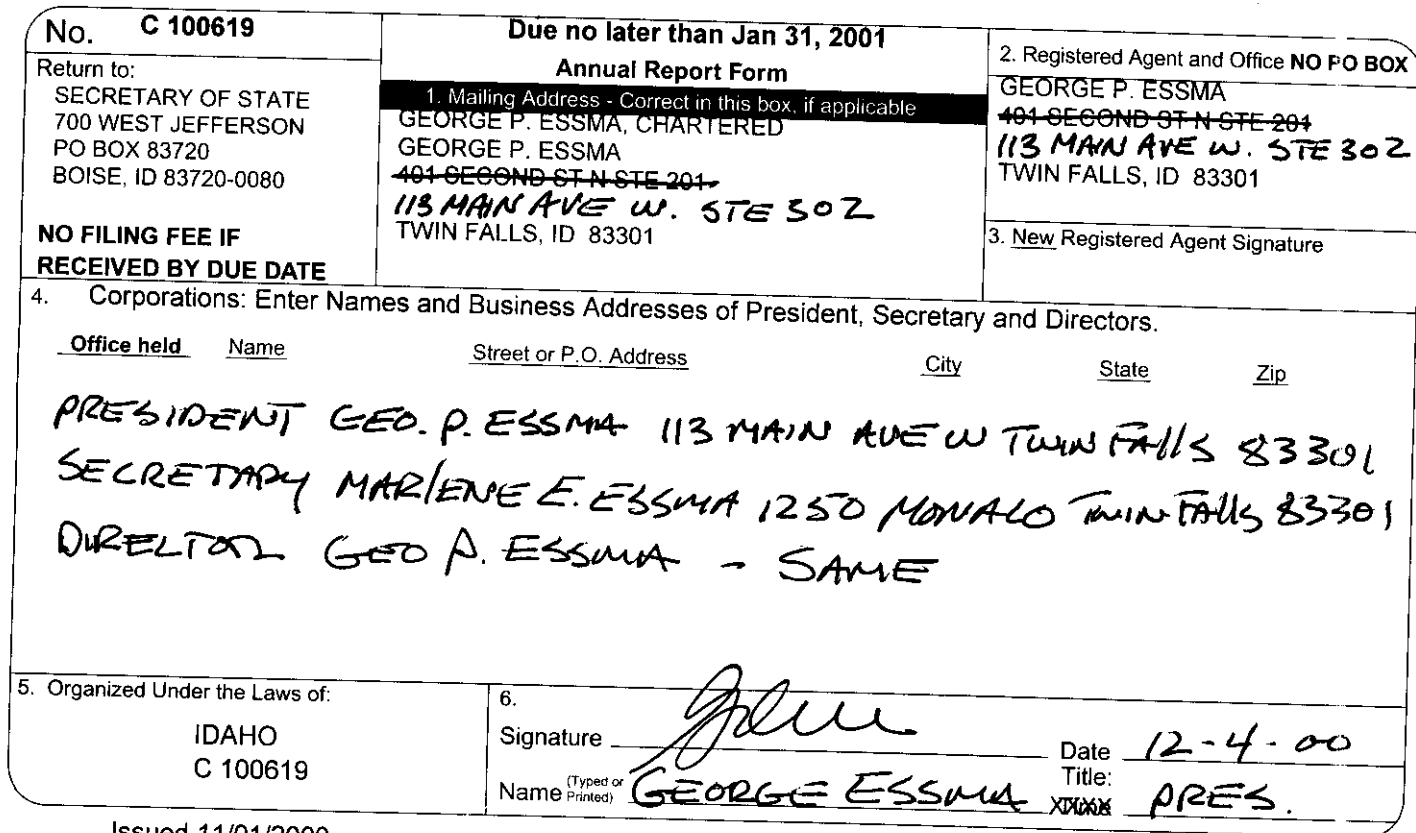 No. C 100619
Return to:
SECRETARY OF STATE
700 WEST JEFFERSON
PO BOX 83720
BOISE, ID 83720-0080
NO FILING FEE IF
RECEIVED BY DUE DATE
Due no later than Jan 31, 2001
Annual Report Form
1. Mailing Address - Correct in this box, if applicable
GEORGE P. ESSMA, CHARTERED
GEORGE P. ESSMA
401 SECOND ST N STE 201
113 MAIN AVE W. STE 302
TWIN FALLS, ID 83301
2. Registered Agent and Office NO PO BOX
GEORGE P. ESSMA
401 SECOND ST N STE 201
113 MAIN AVE W. STE 302
TWIN FALLS, ID 83301
3. New Registered Agent Signature
4. Corporations: Enter Names and Business Addresses of President, Secretary and Directors.
Office held Name Street or P.O. Address City State Zip
PRESIDENT GEO. P. ESSMA 113 MAIN AVE W TWIN FAllS 83301
SECRETARY MARlENE E. ESSMA 1250 TWIN FAllS 83301
DIRECTOR GEO P. ESSMA - SAME
5. Organized Under the Laws of:
IDAHO
C 100619
6.
Signature
Date 12-4-00
Name (Typed or Printed) GEORGE ESSMA
Title: PRES.
Issued 11/01/2000